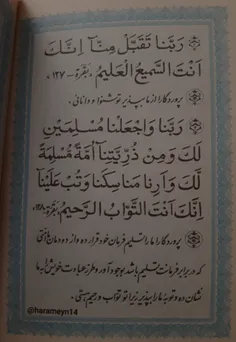 رَبَّنا تَقَبَّلْ مِنّآ اِنَّكَ
اَنْتَ السَّمیعُ الْعَلیمُ «بقره - ۱۲۷»
پروردگارا از ما بپذیر تو شنوا و دانائی.
رَبَّنا وَاجْعَلْنا مُسْلِمَیْنِ
لَكَ وَمِنْ ذُرِّیَّتِنآ اُمَّةً مُسْلِمَةً
لَكَ وَاَرِنا مَناسِكَنا وَتُبْ عَلَیْنآ
اِنَّكَ اَنْتَ التَّوّابُ الرَّحیمُ «بقره ۱۲۸»
پروردگارا ما را تسلیم فرمان خود قرار ده و از دودمان ما امتی
که در برابر فرمانت تسلیم باشد بوجود آور و طرز عبادت خویش را به ما
نشان ده و توبه ما را بپذیر زیرا تو تواب و رحیم هستی.
@harameyn14